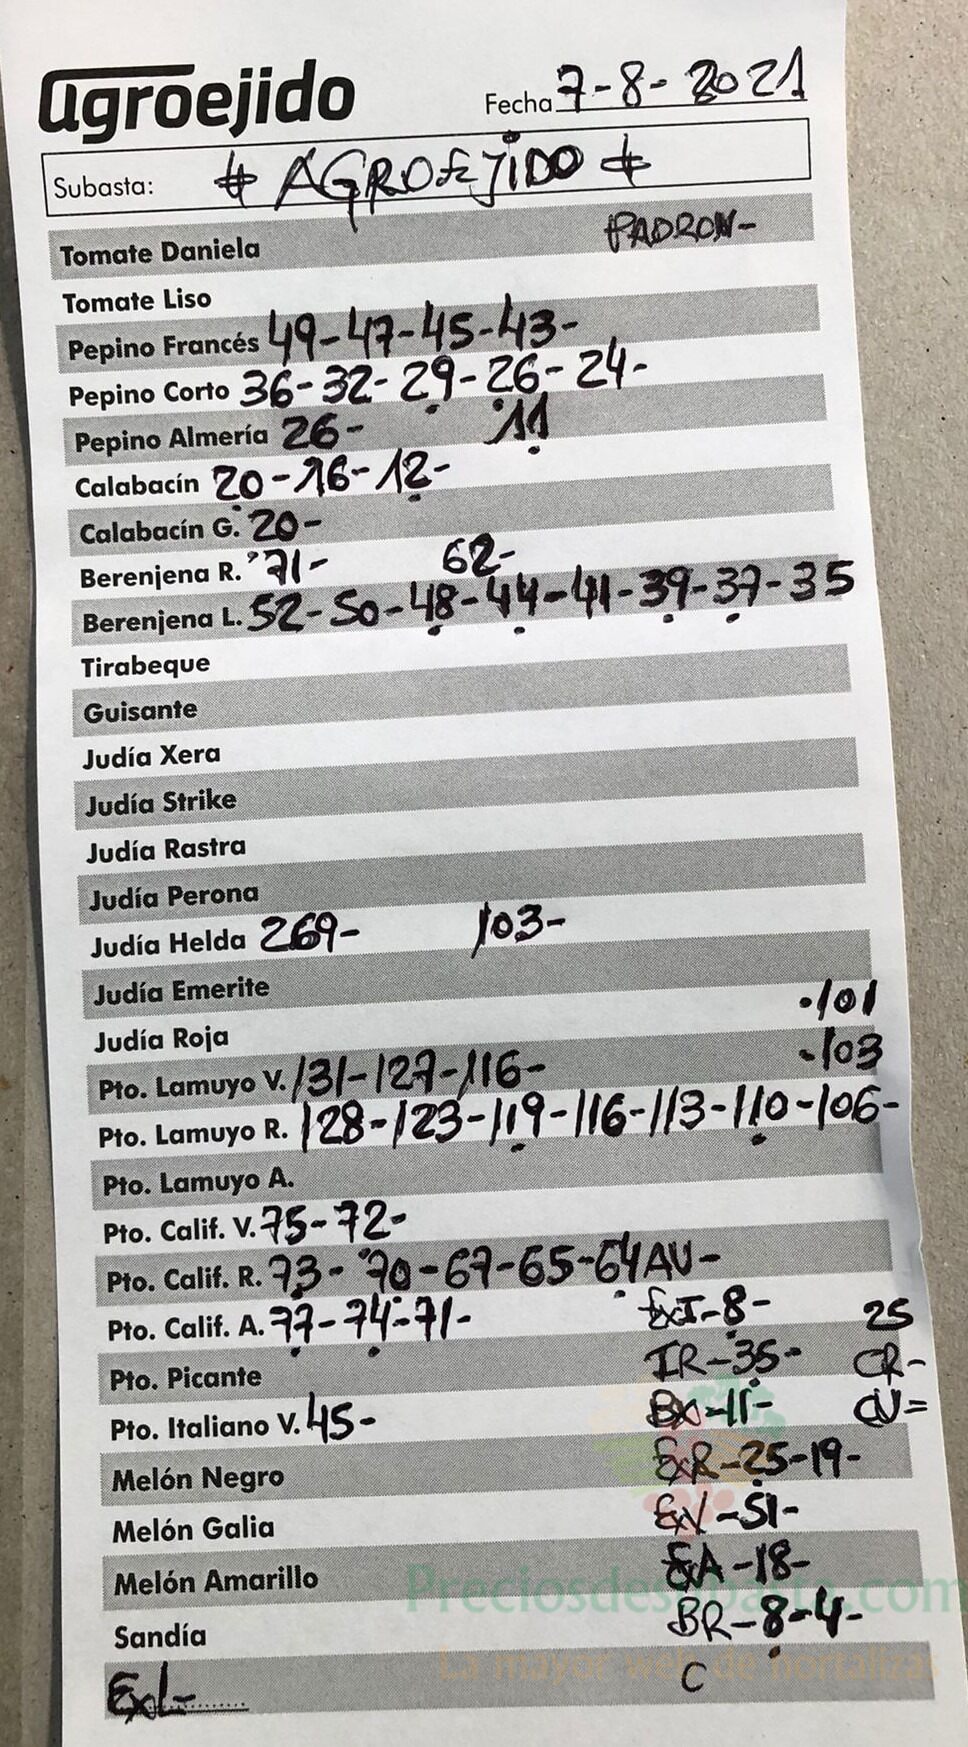 agroejido
Fecha 7-8-2021
Subasta: # AGROEJIDO #
Tomate Daniela PADRON-
Tomate Liso
Pepino Francés 49-47-45-43-
Pepino Corto 36-32-29-26-24-
Pepino Almería 26- 11
Calabacín 20-16-12-
Calabacín G. 20-
Berenjena R. 71- 62-
Berenjena L. 52-50-48-44-41-39-37-35
Tirabeque
Guisante
Judía Xera
Judía Strike
Judía Rastra
Judía Perona
Judía Helda 269- 103-
Judía Emerite
Judía Roja .101
Pto. Lamuyo V. 131-127-116- -103
Pto. Lamuyo R. 128-123-119-116-113-110-106-
Pto. Lamuyo A.
Pto. Calif. V. 75-72-
Pto. Calif. R. 73-70-67-65-64AV-
Pto. Calif. A. 77-74-71- ExI-8- 25
Pto. Picante IR-35- CR-
Pto. Italiano V. 45- Bx-11- CV=
Melón Negro ExR-25-19-
Melón Galia ExV-51-
Melón Amarillo ExA-18-
Preciosdesubasta.com
Sandía BR-8-4-
La mayor web de hortalizas
ExL- C